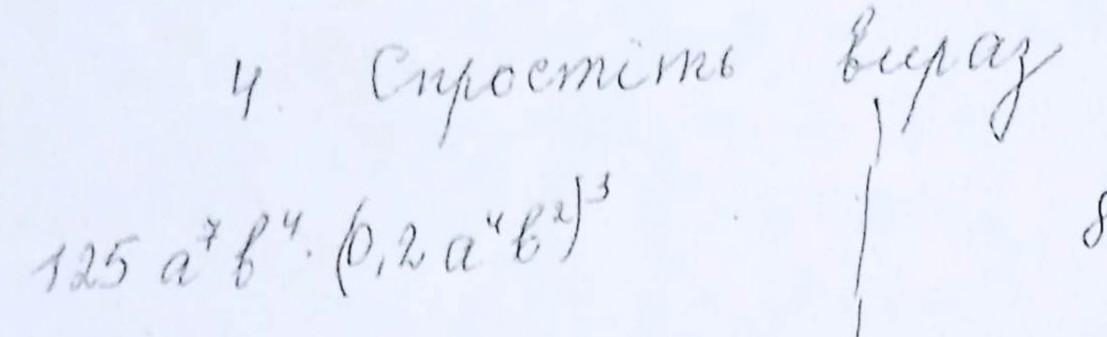 4. Спростіть вираз
125 a⁷ b⁴ · (0,2 a⁴ b²)³
8